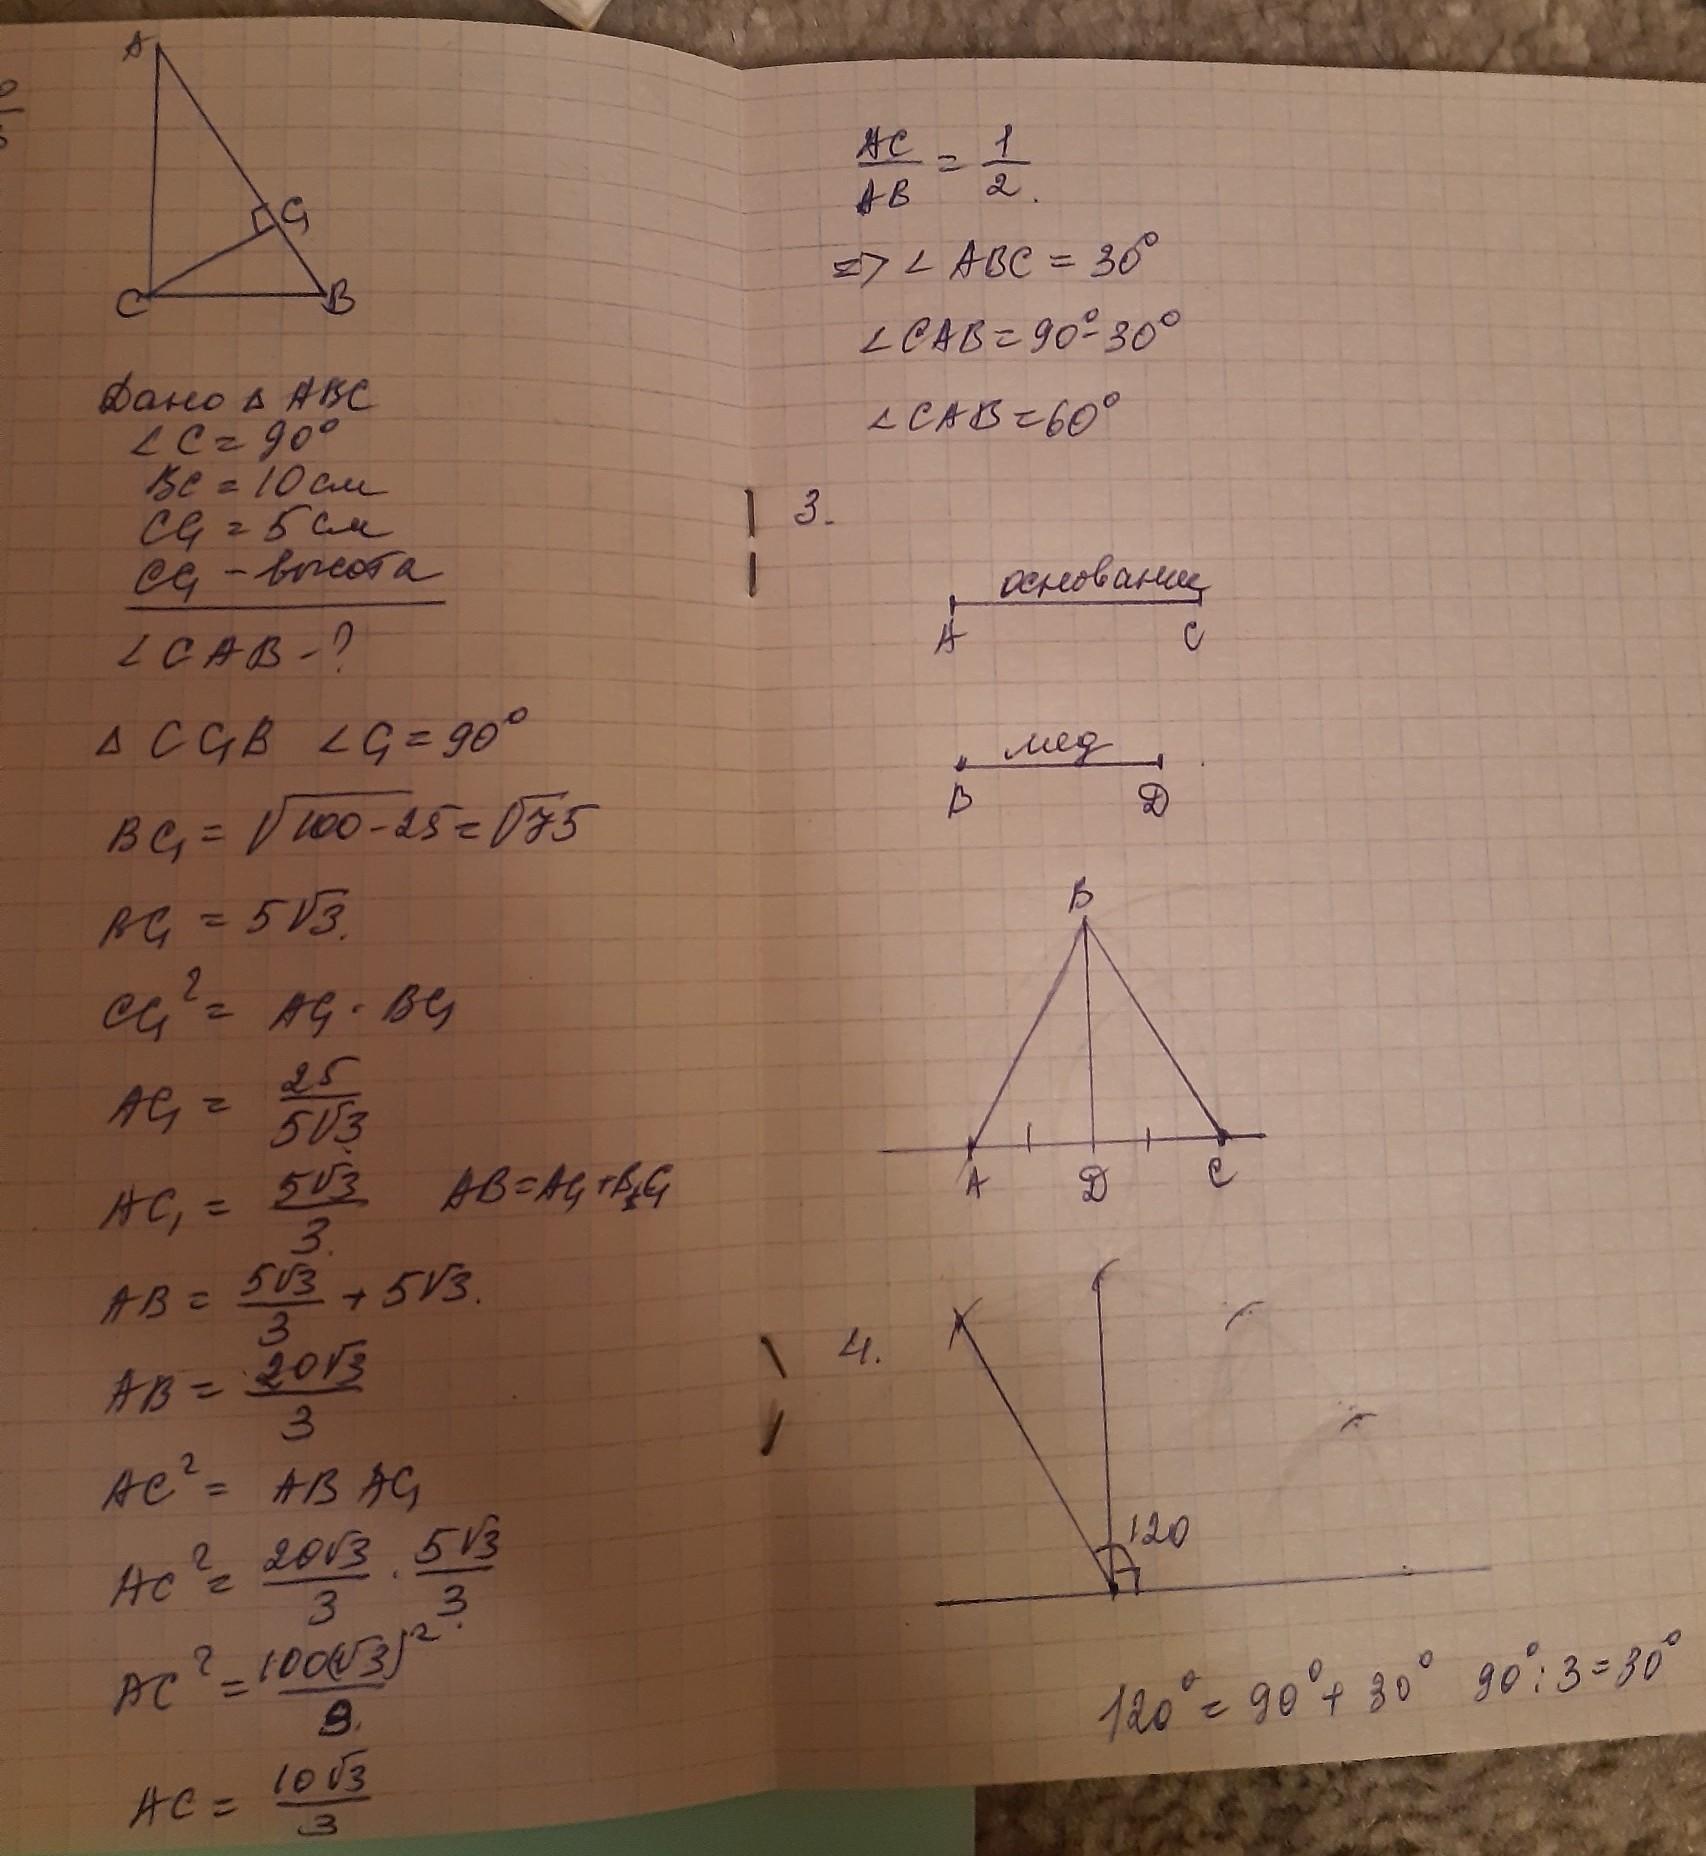 A
C₁
C B
Дано △ ABC
∠C = 90°
BC = 10 см
CC₁ = 5 см
CC₁ – высота
∠CAB - ?
△ CC₁B ∠C₁ = 90°
BC₁ = √100 - 25 = √75
BC₁ = 5√3.
CC₁² = AC₁ · BC₁
AC₁ = 25/5√3
AC₁ = 5√3/3. AB = AC₁ + BC₁
AB = 5√3/3 + 5√3.
AB = 20√3/3
AC² = AB AC₁
AC² = 20√3/3 · 5√3/3.
AC² = 100(√3)²/9.
AC = 10√3/3
AC/AB = 1/2.
=> ∠ABC = 30°
∠CAB = 90° - 30°
∠CAB = 60°
3.
основание
A C
мед
B D
B
A D C
4.
120
120° = 90° + 30° 90° : 3 = 30°